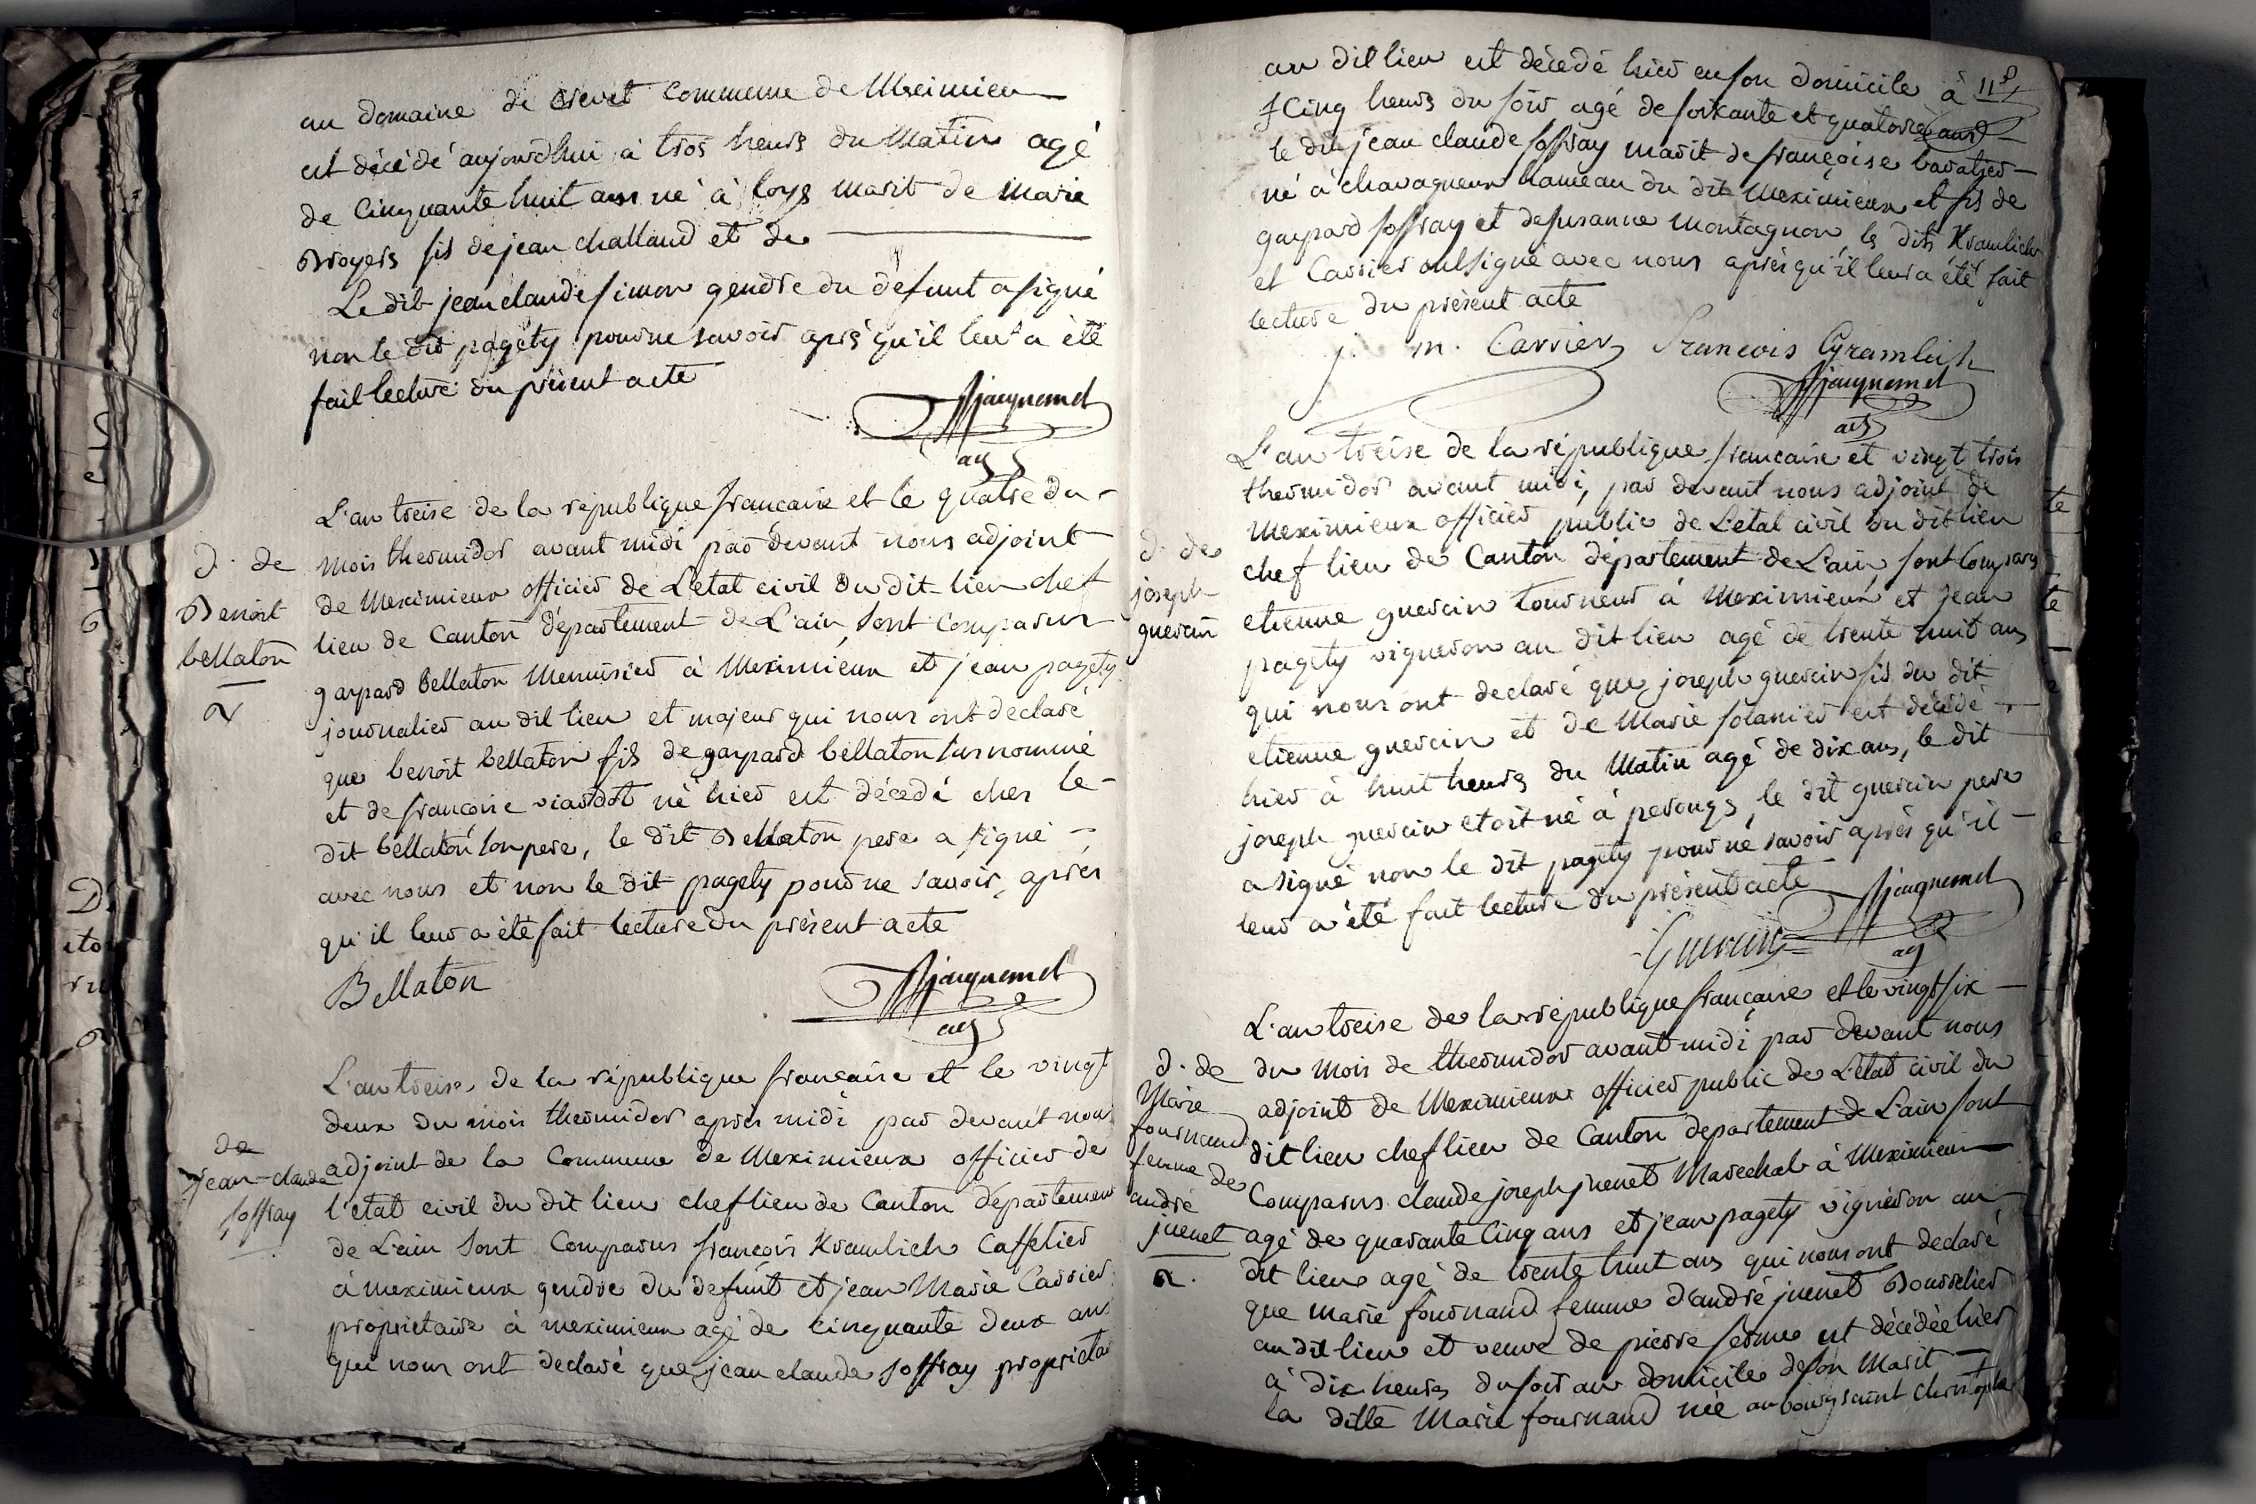 au domaine de crevet Commune de Meximieu
est décédé aujourdhui à trois heurs du Matin agé
de Cinquante huit ans né à loys marit de Marie
Broyers fils de jean challand et de
Le dit jean claude simon gendre du défunt a signé
non le dit pagéty pour ne savoir après qu'il leur a été
fait lecture du présent acte
Jacquemet
adj
d. de
Benoit
bellaton
L'an treise de la république francaise et le quatre du
mois thermidor avant midi par devant nous adjoint
de Meximieux officier de L'etat civil du dit lien chef
lieu de Canton département de L'ain, sont Comparus
gaspard bellaton Menuisier à Meximieux et jean pagéty
journalier au dit lieu et majeur qui nous ont déclaré
que benoit bellaton fils de gaspard bellaton susnommé
et de francoise viardot né hier est décédé ches le
dit bellaton son pere, le dit Bellaton pere a signé
avec nous et non le dit pagety pour ne savoir, après
qu'il leur a été fait lecture du présent acte
Bellaton
Jacquemet
adj
de
jean-claude
soffray
L'an treise de la république francaise et le vingt
deux du mois thermidor après midi par devant nous
adjoint de la Commune de Meximieux officier de
l'etat civil du dit lieu chef lieu de Canton département
de L'ain sont Comparus francois Kramlich Caffetier
à meximieux gendre du defunt et jean Marie Carrier
proprietaire à meximieux agé de cinquante deux ans
qui nous ont declaré que jean claude soffray proprietai
118
au dit lieu est décédé hier en son domicile à
Cinq heurs du soir agé de soixante et quatorze ans
le dit jean claude soffray marit de françoise baratier
né à chavagneux hameau du dit Meximieux et fils de
gaspard soffray et de susanne montagnon, ls dits Kramlich
et Carrier ont signé avec nous après qu'il leur a été fait
lecture du présent acte
j. m. Carrier Francois Gramlich
Jacquemet
adj
d. de
joseph
guercin
L'an treise de la république francaise et vingt trois
thermidor avant midi, par devant nous adjoint de
Meximieux officier public de L'etat civil du dit lieu
chef lieu de Canton département de L'ain, sont Comparus
etienne guercin tourneur à Meximieux et jean
pagety vigneron au dit lieu agé de trente huit ans
qui nous ont declaré que joseph guercin fils du dit
etienne guercin et de Marie solanier est décédé
hier à huit heurs du Matin agé de dix ans, le dit
joseph guercin etoit né à perouges, le dit guercin pere
a signé non le dit pagety pour ne savoir après qu'il
leur a été fait lecture du présent acte
Guercin
Jacquemet
adj
d. de
Marie
fournand
femme de
andré
juenet
L'an treise de la république francaise et le vingt six
du Mois de thermidor avant midi par devant nous
adjoint de Meximieux officier public de L'etat civil du
dit lieu chef lieu de Canton departement de L'ain sont
Comparus claude joseph juenet Marechal à Meximieux
agé de quarante Cinq ans et jean pagety vigneron au
dit lieu agé de trente huit ans qui nous ont declaré
que marie fournand femme d'andré juenet Bourrelier
au dit lieu et veuve de pierre ferme est décédée hier
à dix heurs du soir au domicile de son Marit
la ditte Marie fournand née au bourg saint christophe